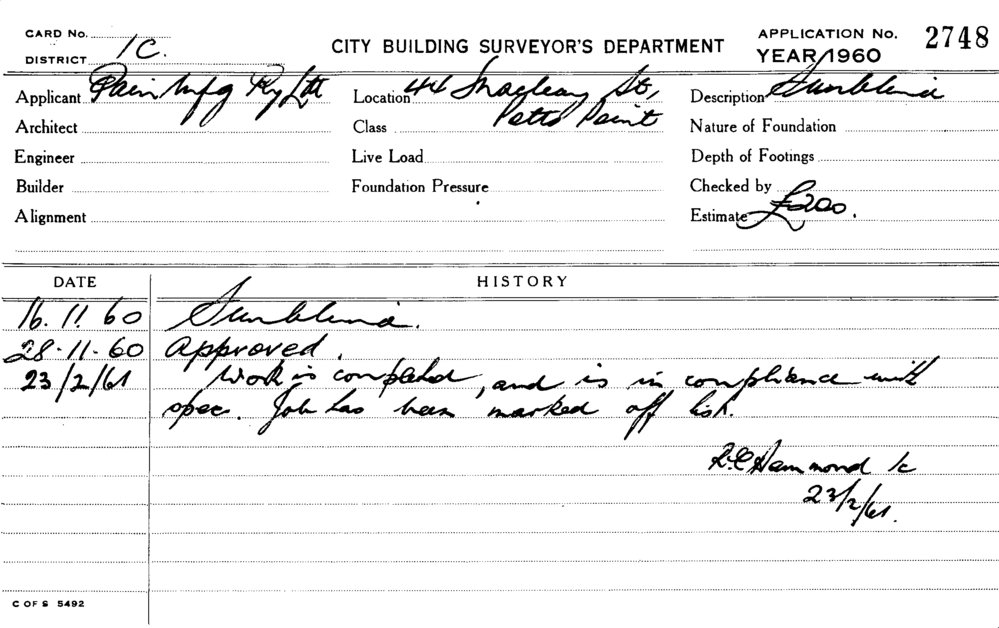 CARD No.
DISTRICT 1C.
CITY BUILDING SURVEYOR'S DEPARTMENT
APPLICATION No. 2748
YEAR/1960
Applicant Pain Mfg Pty Ltd
Location 44 Macleay St,
Potts Point
Description Sunblind
Architect
Class
Nature of Foundation
Engineer
Live Load
Depth of Footings
Builder
Foundation Pressure
Checked by
Alignment
Estimate £200.
DATE HISTORY
16.11.60 Sunblind.
28-11-60 Approved.
23/2/61 Work is completed, and is in compliance with
spec. Job has been marked off list.
R.C Hammond 1c
23/2/61.
C OF S 5492